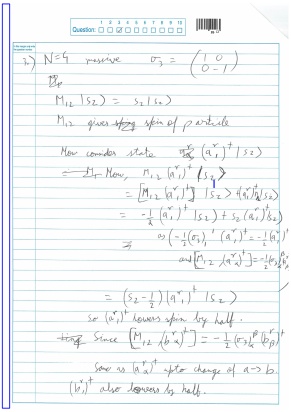 Question: 1 2 3 4 5 6 7 8 9 10
3c) N=4 massive σ₃ = (1 0
0 -1)
M₁₂ |s₂⟩ = s₂|s₂⟩
M₁₂ gives spin of particle
Now consider state (a₁ʳ)† |s₂⟩
Now, M₁₂ (a₁ʳ)† |s₂⟩
= [M₁₂, (a₁ʳ)†] |s₂⟩ + (a₁ʳ)†
= -½ (a₁ʳ)† |s₂⟩ + s₂ (a₁ʳ)† |s₂⟩
as (-½(σ₃)₁¹ (a₁ʳ)† = -½(a₁ʳ)†
and [M₁₂,
= (s₂-½) (a₁ʳ)† |s₂⟩
so (a₁ʳ)† lowers spin by half.
Since [M₁₂, (b_αʳ)†] = -½ (σ₃)_α^β (b_βʳ)†
same as (a_αʳ)† upto change of a→b.
(b₁ʳ)† also lowers by half.